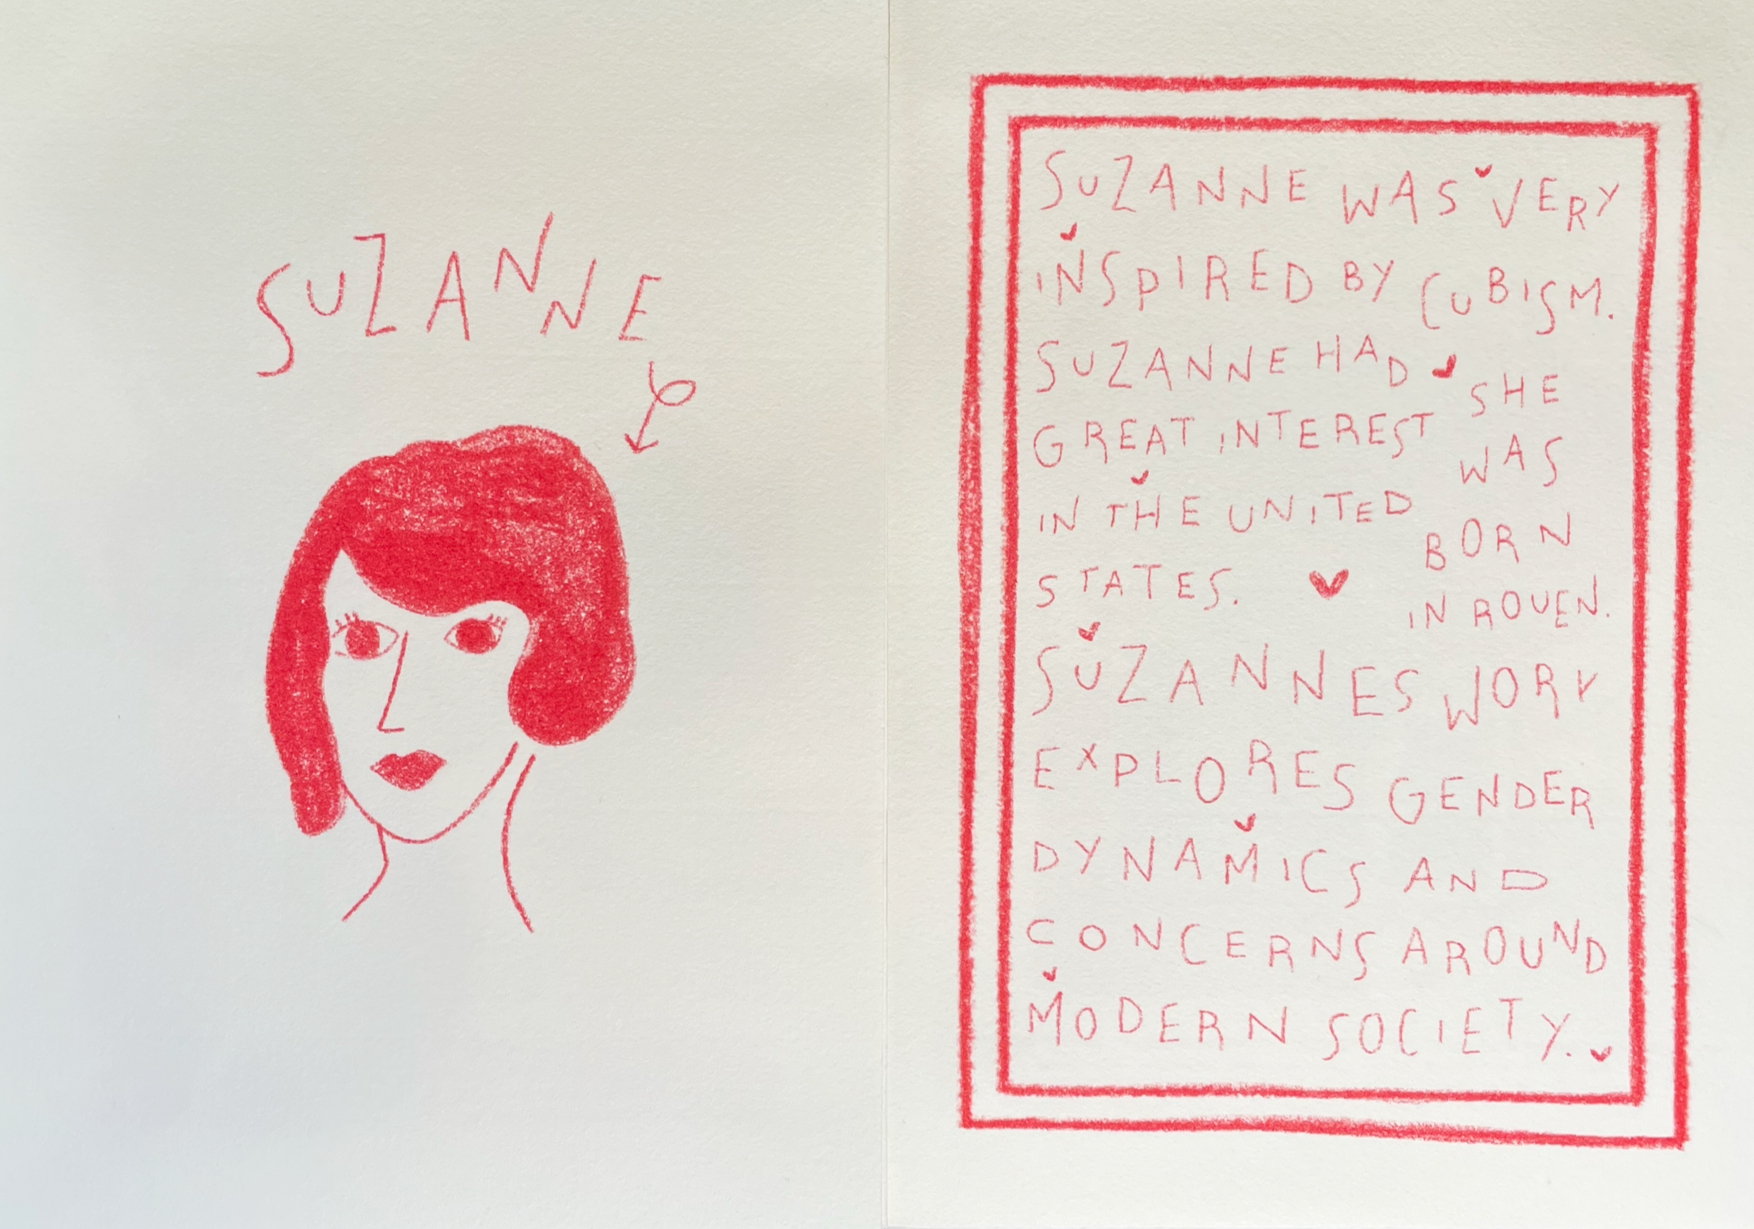 SUZANNE
SUZANNE WAS VERY
INSPIRED BY CUBISM.
SUZANNE HAD
GREAT INTEREST
IN THE UNITED
STATES.
SHE
WAS
BORN
IN ROUEN.
SUZANNES WORK
EXPLORES GENDER
DYNAMICS AND
CONCERNS AROUND
MODERN SOCIETY.